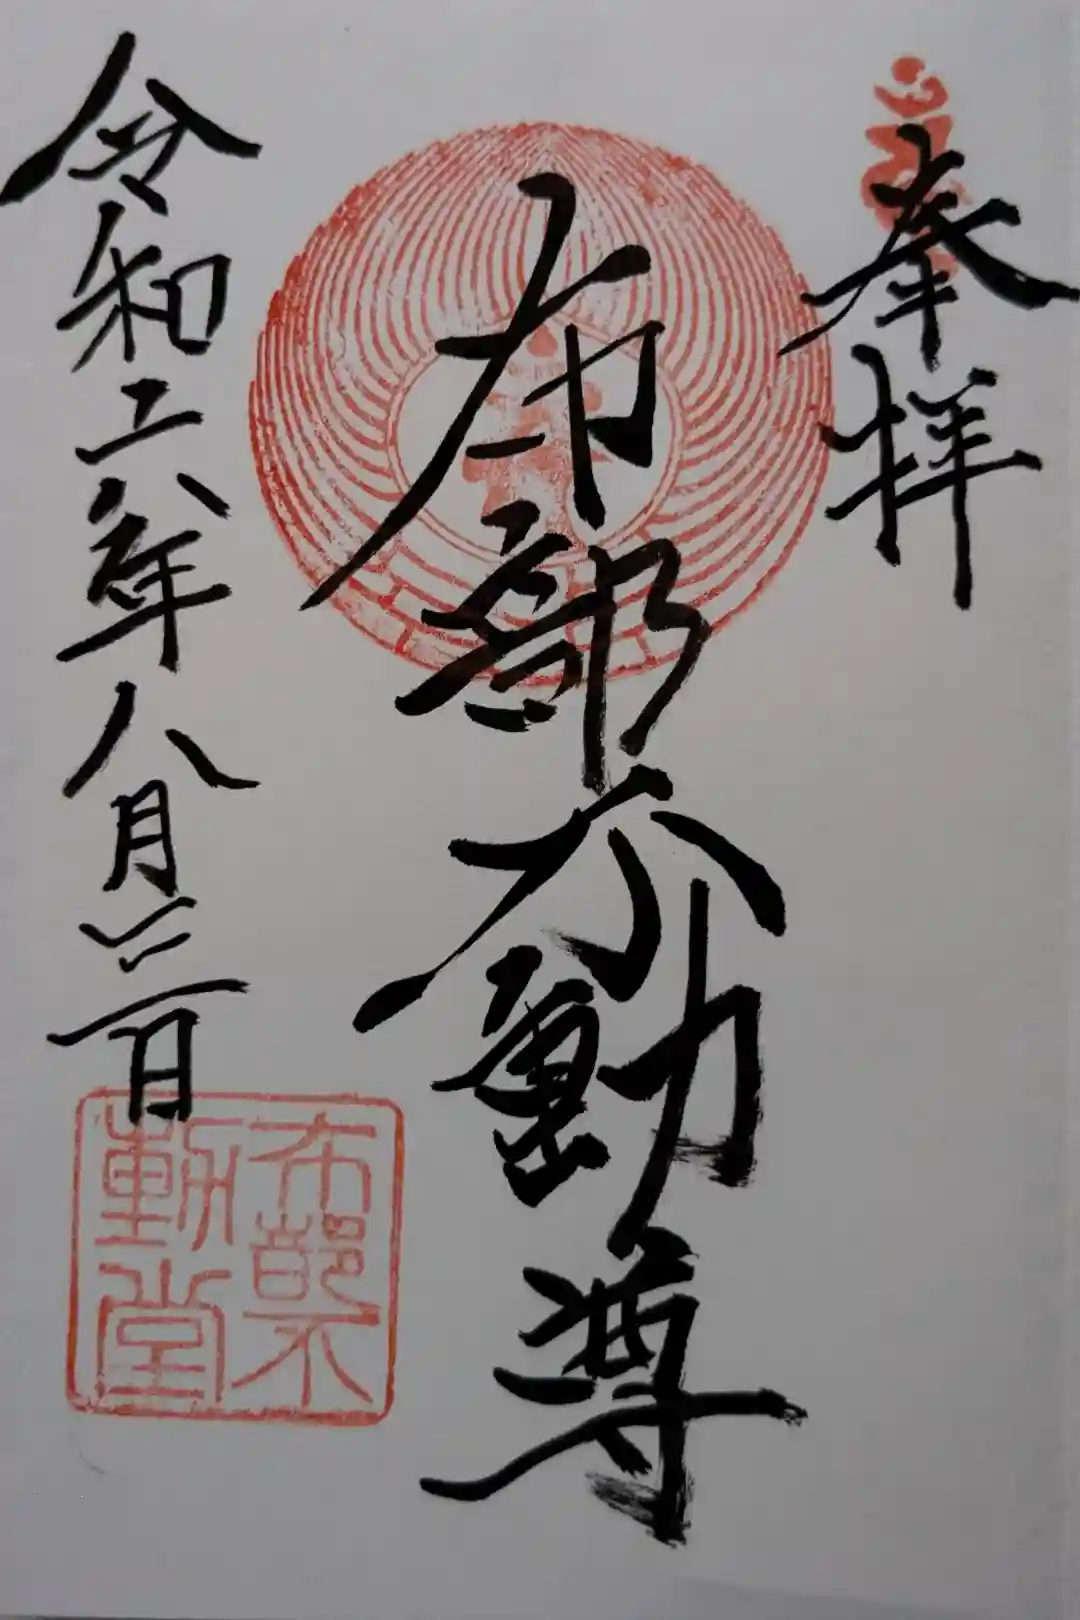 奉拝
布部不動尊
令和六年八月三日
布部不
動堂